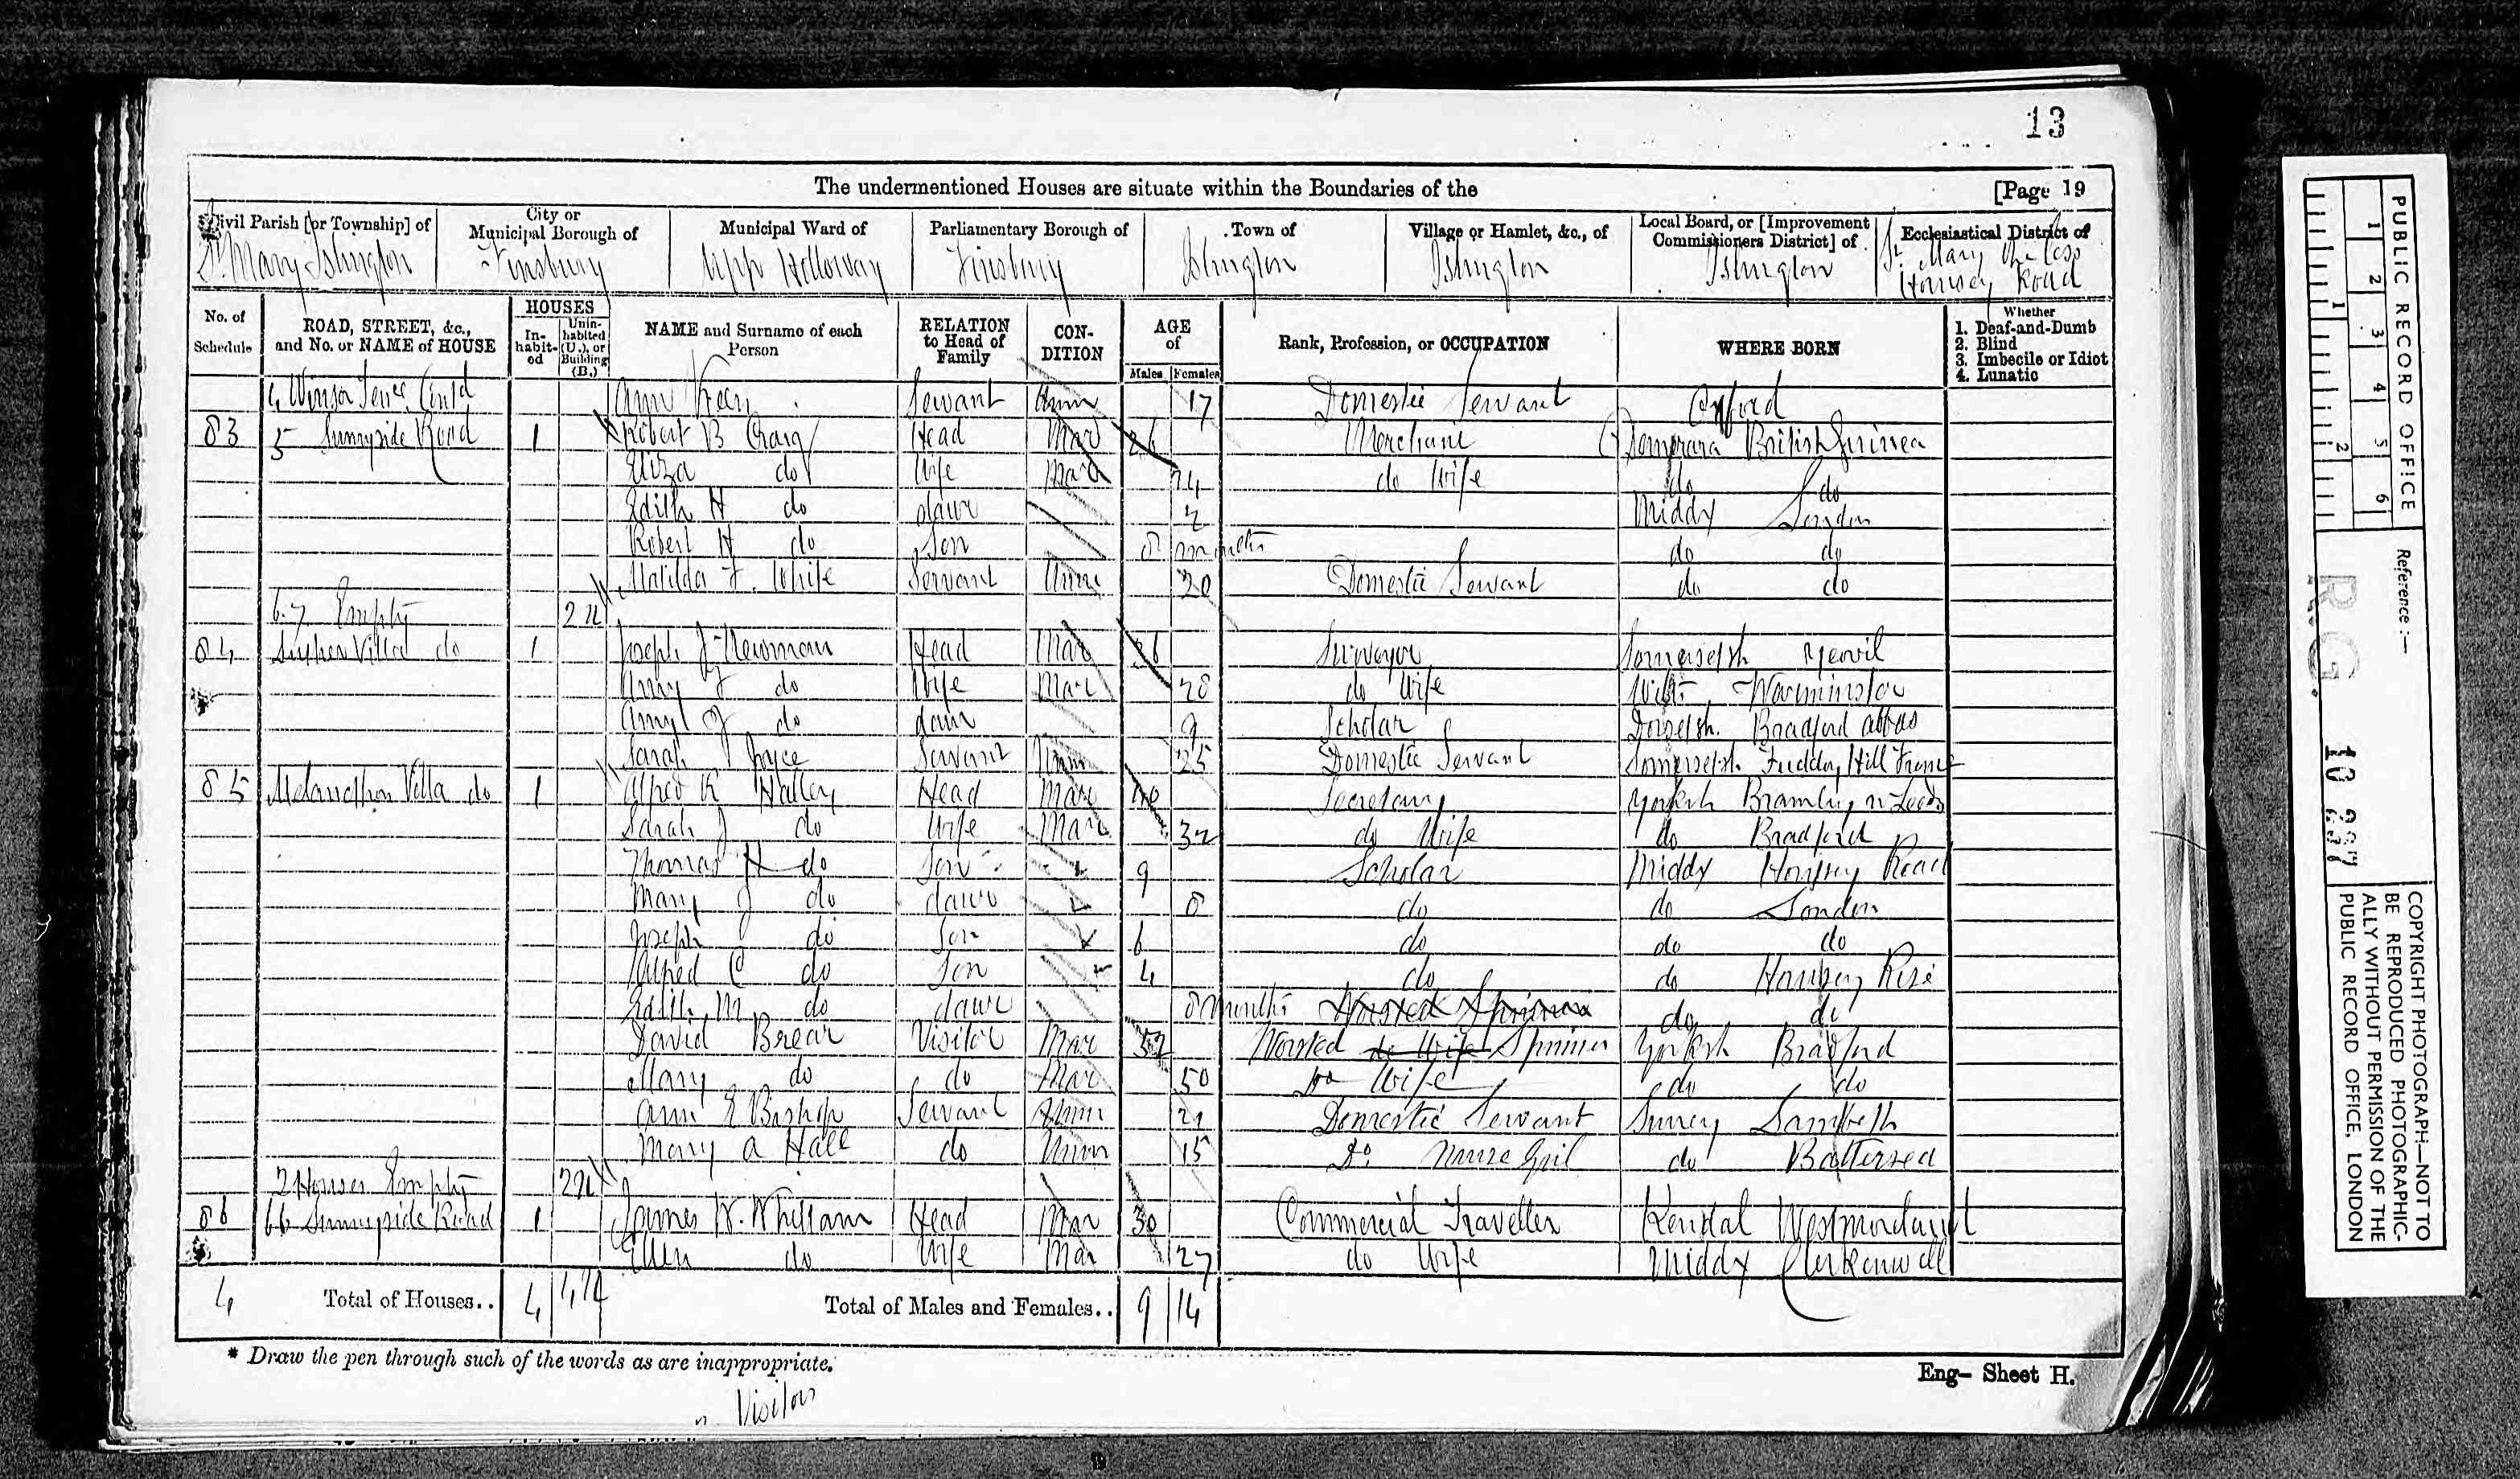 13
The undermentioned Houses are situate within the Boundaries of the [Page 19
Civil Parish [or Township] of
City or Municipal Borough of
Municipal Ward of
Parliamentary Borough of
Town of
Village or Hamlet, &c., of
Local Board, or [Improvement Commissioners District] of
Ecclesiastical District of
St Mary Islington Finsbury Upp Holloway Finsbury Islington Islington Islington St Mary the Less Hornsey Road
No. of Schedule
ROAD, STREET, &c., and No. or NAME of HOUSE
HOUSES
In-habit-ed
Unin-habited (U.), or Building (B.)
NAME and Surname of each Person
RELATION to Head of Family
CON-DITION
AGE of
Males Females
Rank, Profession, or OCCUPATION
WHERE BORN
Whether
1. Deaf-and-Dumb
2. Blind
3. Imbecile or Idiot
4. Lunatic
4 Ann Servant Unm 17 Domestic Servant Oxford
83 5 Sunnyside Road 1 Robert B Craig Head Mar 26 Merchant Demerara British Guinea
Eliza do Wife Mar 24 do Wife do do
Edith H do daur 2 Middx London
Robert H do Son 8 months do do
Matilda White Servant Unm 20 Domestic Servant do do
6.7 Empty 2 U
84 Villa do 1 Joseph J Newman Head Mar 36 Surveyor Somersetsh Yeovil
Amy J do Wife Mar 28 do Wife Wilts Warminster
Amy J do daur 9 Scholar Dorsetsh. Bradford abbas
Sarah Joyce Servant Unm 25 Domestic Servant Somersetsh Hill
85 Melancthon Villa do 1 Alfred R Hailey Head Mar 40 Secretary Yorksh Bramley nr Leeds
Sarah J do Wife Mar 32 do Wife do Bradford
Thomas H do Son 9 Scholar Middx Hornsey Road
Mary J do daur 8 do do London
Joseph J do Son 6 do do do
Alfred C do Son 4 do do Hornsey Rise
Edith M do daur 8 months Worsted Spinner do do
David Brear Visitor Mar 52 Worsted do Wife Spinner Yorksh Bradford
Mary do do Mar 50 Do Wife do do
Ann E Bishop Servant Unm 21 Domestic Servant Surrey Lambeth
Mary A Hall do Unm 15 Do Nurse Girl do Battersea
2 Houses Empty 2 U
86 66 Sunnyside Road 1 James W. Head Mar 30 Commercial Traveller Kendal Westmorland
Ellen do Wife Mar 27 do Wife Middx Clerkenwell
4 Total of Houses.. 4 4 U Total of Males and Females.. 9 14
* Draw the pen through such of the words as are inappropriate.
Eng– Sheet H.
Visitor
PUBLIC RECORD OFFICE
1 2 3 4 5 6
1 2
Reference :—
R.G. 10
COPYRIGHT PHOTOGRAPH—NOT TO
BE REPRODUCED PHOTOGRAPHIC-
ALLY WITHOUT PERMISSION OF THE
PUBLIC RECORD OFFICE, LONDON